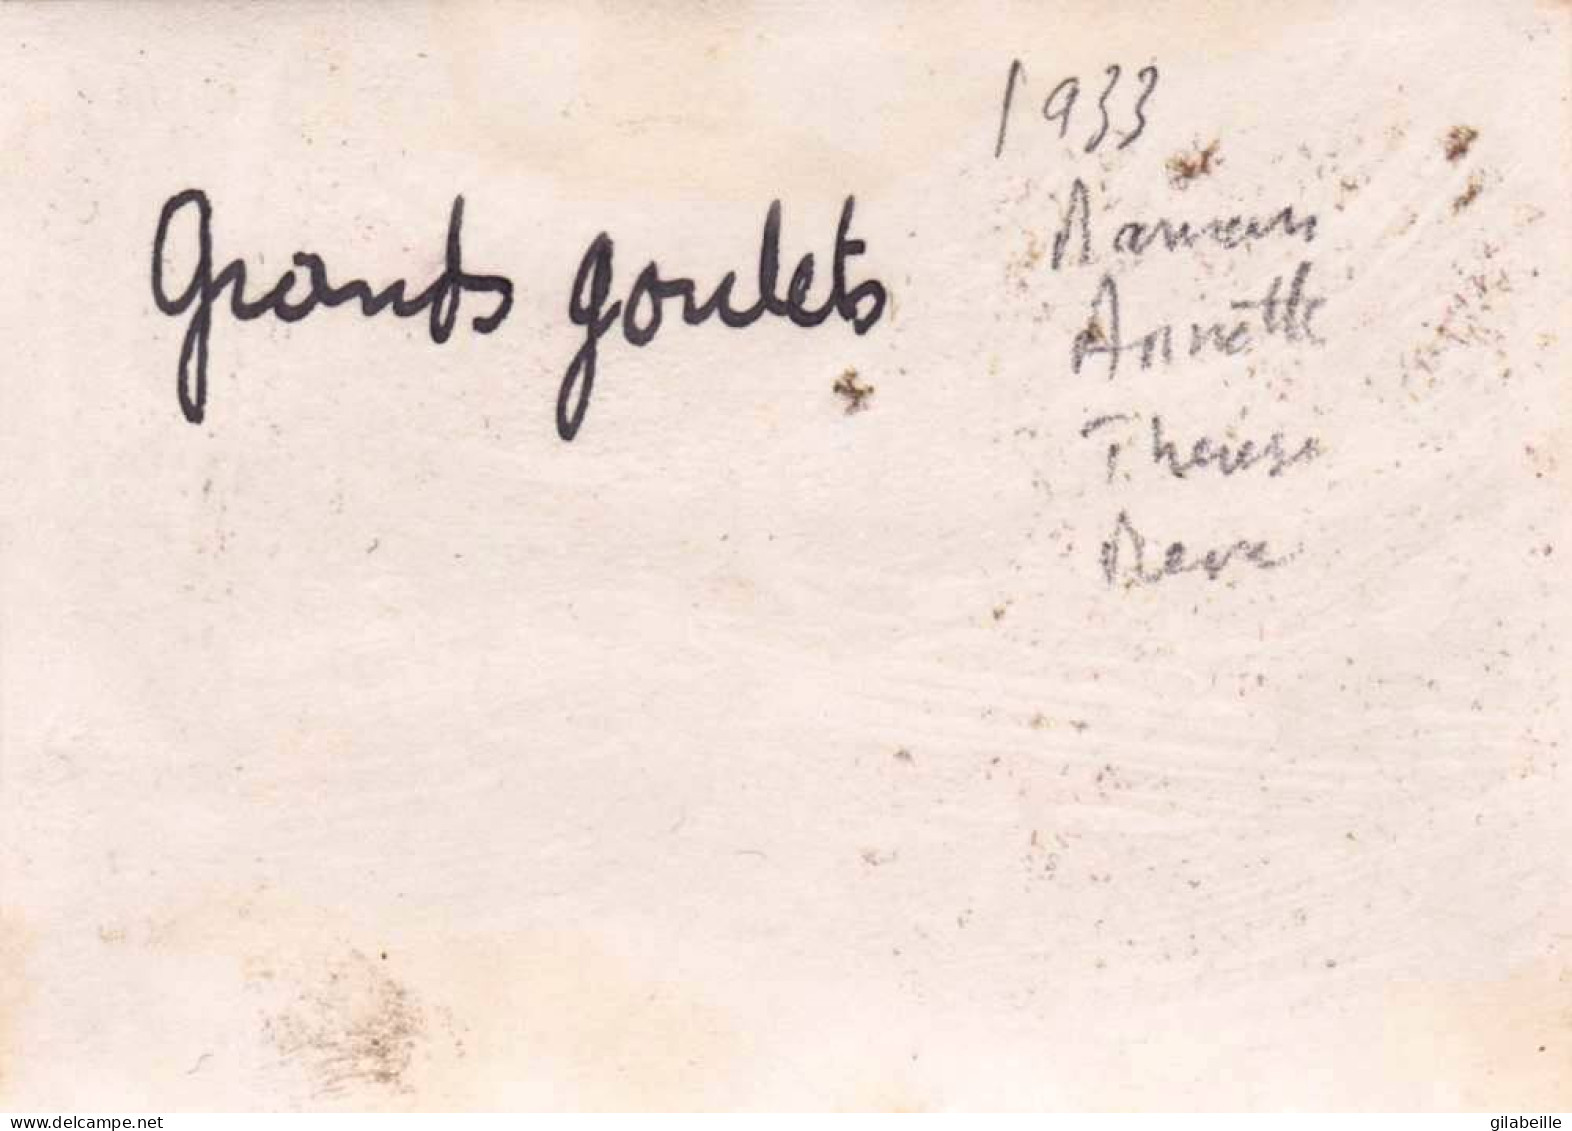 1933
Grands goulets
Maman
Annette
Thérèse
www.delcampe.net
gilabeille